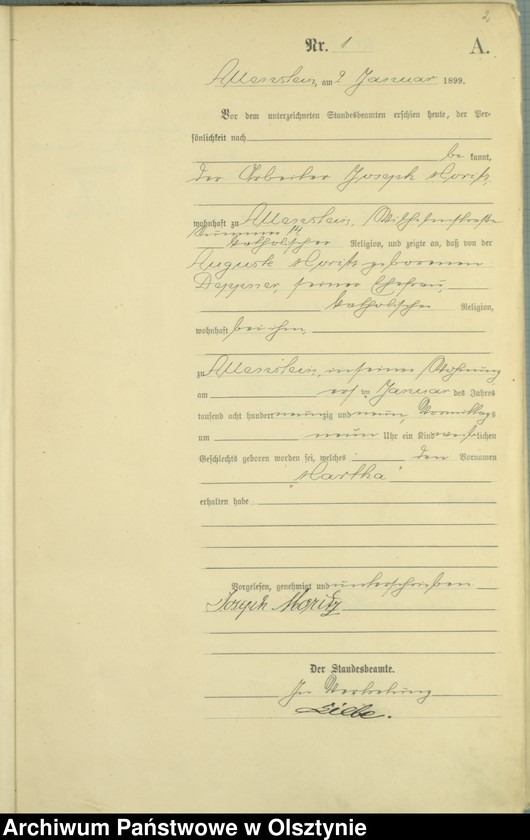 2
Nr. 1 A.
Allenstein, am 2 Januar 1899.
Vor dem unterzeichneten Standesbeamten erschien heute, der Per-
sönlichkeit nach
be kannt,
der Arbeiter Joseph Moritz,
wohnhaft zu Allenstein, Wilhelmstraße
Nummer 14
katholischer Religion, und zeigte an, daß von der
Auguste Moritz geborenen
seiner Ehefrau,
katholischer Religion,
wohnhaft bei ihm,
zu Allenstein, in seiner Wohnung
am ersten Januar des Jahres
tausend acht hundert neunzig und neun, Vormittags
um neun Uhr ein Kind weiblichen
Geschlechts geboren worden sei, welches den Vornamen
"Martha"
erhalten habe
Vorgelesen, genehmigt und unterschrieben
Joseph Moritz
Der Standesbeamte.
In Vertretung
Archiwum Państwowe w Olsztynie